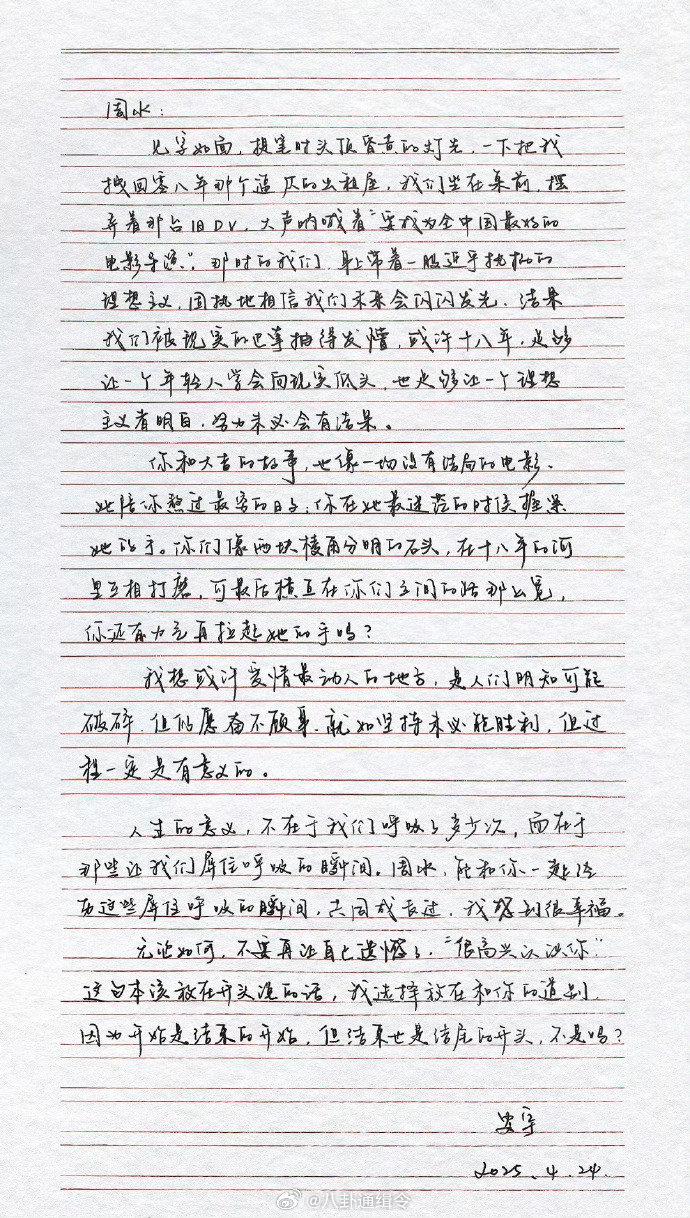 周水:
见字如面，提笔时头顶昏黄的灯光，一下把我
拽回零八年那个逼仄的出租屋，我们坐在桌前，摆
弄着那台旧DV，大声呐喊着“要成为全中国最好的
电影导演”，那时的我们，身上带着一股近乎执拗的
理想主义，固执地相信我们未来会闪闪发光，结果
我们被现实的巴掌抽得发懵，或许十八年，足够
让一个年轻人学会向现实低头，也足够让一个理想
主义者明白，努力未必会有结果。
你和大吉的故事，也像一场没有结局的电影、
她陪你熬过最穷的日子，你在她最迷茫的时候握紧
她的手。你们像两块棱角分明的石头，在十八年的河
里互相打磨，可最后横亘在你们之间的路那么宽，
你还有力气再拉起她的手吗？
我想或许爱情最动人的地方，是人们明知可能
破碎，但仍愿奋不顾身，就如坚持未必能胜利，但过
程一定是有意义的。
人生的意义，不在于我们呼吸了多少次，而在于
那些让我们屏住呼吸的瞬间。周水，能和你一起经
历这些屏住呼吸的瞬间，共同成长过，我感到很幸福。
无论如何，不要再让自己遗憾了，“很高兴认识你”
这句本该放在开头说的话，我选择放在和你的道别，
因为开始是结束的开始，但结束也是结尾的开头，不是吗？
安宇
2025.4.24.
@八卦通缉令